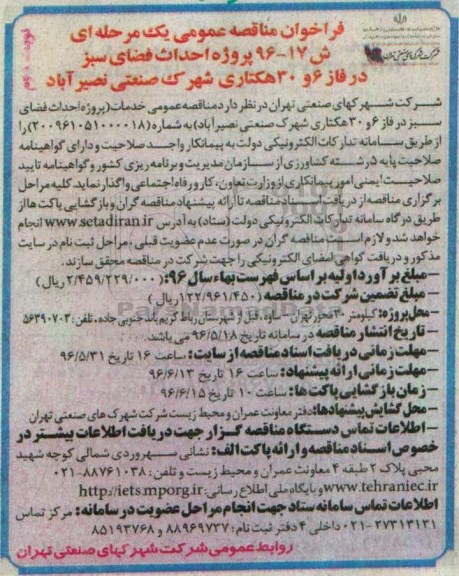 فراخوان مناقصه عمومی یک مرحله ای
ش ۱۷-۹۶ پروژه احداث فضای سبز
در فاز ۶ و ۳۰ هکتاری شهرک صنعتی نصیرآباد
شرکت شهرکهای صنعتی تهران در نظر دارد مناقصه عمومی خدمات (پروژه احداث فضای
سبز در فاز ۶ و ۳۰ هکتاری شهرک صنعتی نصیرآباد) به شماره (۲۰۰۹۶۱۰۵۱۰۰۰۰۱۸) را
از طریق سامانه تدارکات الکترونیکی دولت به پیمانکار واجد صلاحیت و دارای گواهینامه
صلاحیت پایه ۵ رشته کشاورزی از سازمان مدیریت و برنامه ریزی کشور و گواهینامه تایید
صلاحیت ایمنی امور پیمانکاری از وزارت تعاون، کار و رفاه اجتماعی واگذار نماید. کلیه مراحل
برگزاری مناقصه از دریافت اسناد مناقصه تا ارائه پیشنهاد مناقصه گران و بازگشایی پاکت ها از
طریق درگاه سامانه تدارکات الکترونیکی دولت (ستاد) به آدرس www.setadiran.ir انجام
خواهد شد و لازم است مناقصه گران در صورت عدم عضویت قبلی، مراحل ثبت نام در سایت
مذکور و دریافت گواهی امضای الکترونیکی را جهت شرکت در مناقصه محقق سازند.
–مبلغ برآورد اولیه بر اساس فهرست بهاء سال ۹۶: (۲/۴۵۹/۲۲۹/۰۰۰ ریال)
–مبلغ تضمین شرکت در مناقصه (۱۲۲/۹۶۱/۴۵۰ ریال)
–محل پروژه: کیلومتر ۳۰ محور تهران – ساوه، قبل از شهرستان رباط کریم، باند جنوبی جاده. تلفن: ۵۶۳۹۰۷۰۳
–تاریخ انتشار مناقصه در سامانه تاریخ ۹۶/۵/۱۸ می باشد.
–مهلت زمانی دریافت اسناد مناقصه از سایت: ساعت ۱۶ تاریخ ۹۶/۵/۳۱
–مهلت زمانی ارائه پیشنهاد: ساعت ۱۶ تاریخ ۹۶/۶/۱۳
–زمان بازگشایی پاکت ها: ساعت ۱۰ تاریخ ۹۶/۶/۱۵
–محل گشایش پیشنهادها: دفتر معاونت عمران و محیط زیست شرکت شهرک های صنعتی تهران
–اطلاعات تماس دستگاه مناقصه گزار جهت دریافت اطلاعات بیشتر در
خصوص اسناد مناقصه و ارائه پاکت الف: نشانی سهروردی شمالی کوچه شهید
محبی پلاک ۲ طبقه ۴ معاونت عمران و محیط زیست و تلفن: ۸۸۷۶۱۰۳۸-۰۲۱
www.tehraniec.ir و یا پایگاه ملی اطلاع رسانی: http://iets.mporg.ir
اطلاعات تماس سامانه ستاد جهت انجام مراحل عضویت در سامانه: مرکز تماس
۲۷۳۱۳۱۳۱-۰۲۱ داخلی ۴ دفتر ثبت نام: ۸۸۹۶۹۷۳۷ و ۸۵۱۹۳۷۶۸
روابط عمومی شرکت شهرکهای صنعتی تهران